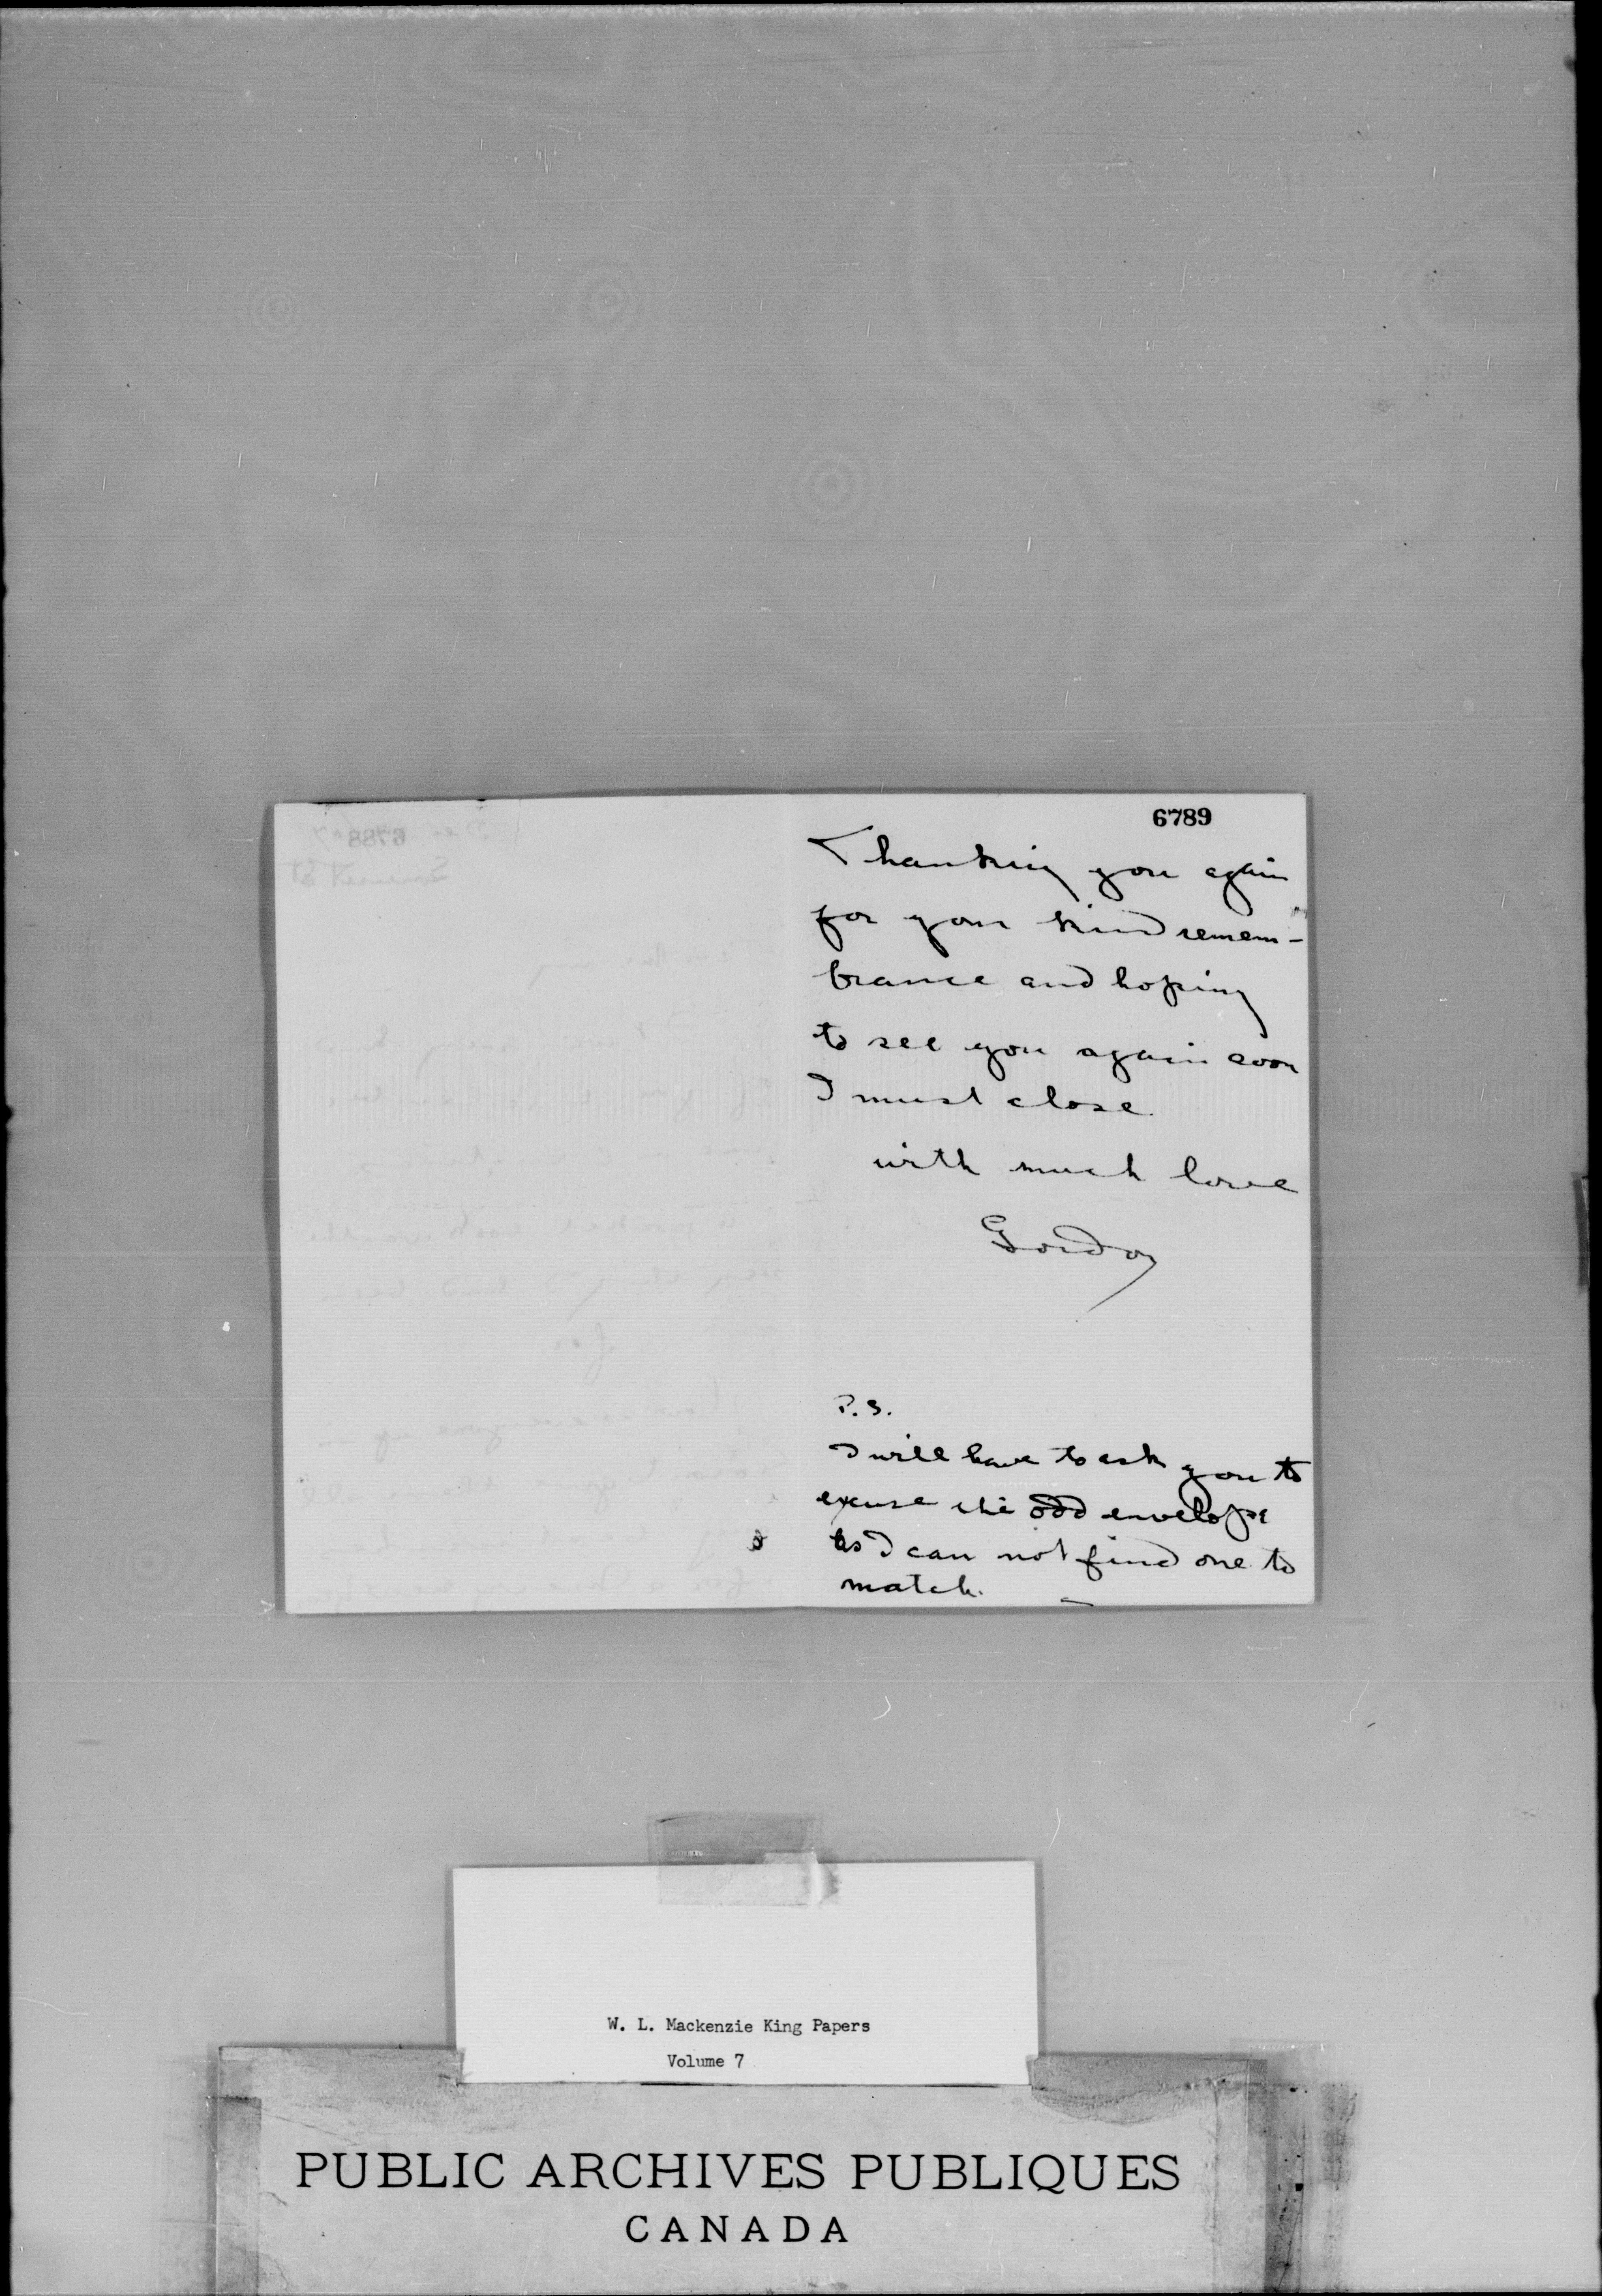 6789
Thanking you again
for your kind remem-
brance and hoping
to see you again soon
I must close.
with much love
Gordon
P.S.
I will have to ask you to
excuse the odd envelope
as I can not find one to
match.
W. L. Mackenzie King Papers
Volume 7
PUBLIC ARCHIVES PUBLIQUES
CANADA